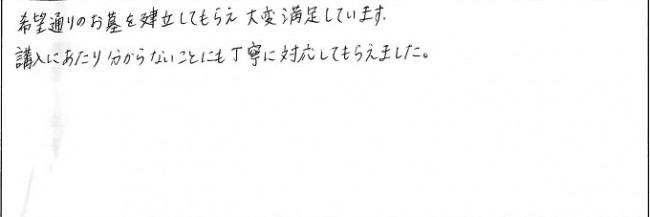 希望通りのお墓を建立してもらえ大変満足しています.
講入にあたり分からないことにも丁寧に対応してもらえました。